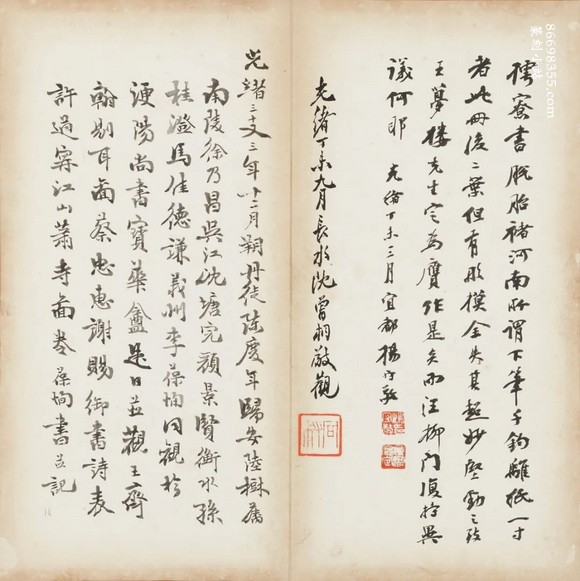 儒寮書脫胎褚河南所謂下筆千鈞離紙一寸
者此冊後二葉但有形模全失其超妙堅勁之致
王夢樓先生定為贗作是矣而汪柳門復持異
議何耶 光緒丁未三月宜都楊守敬
光緒丁未九月長水沈曾桐敬觀
光緒三十又三年十二月朔丹徒陳慶年歸安陸樹藩
南陵徐乃昌吳江沈塘完顏景賢衡水孫
桂澄馬佳德謙義州李葆恂同觀於
浭陽尚書寶華盦是日並觀王齊
翰剔耳圖蔡忠惠謝賜御書詩表
許道寧江山蕭寺圖卷葆恂書並記
篆刻小站
86698355.com